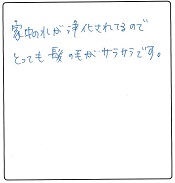 家中の水が浄化されてるので
とっても髪の毛がサラサラです。